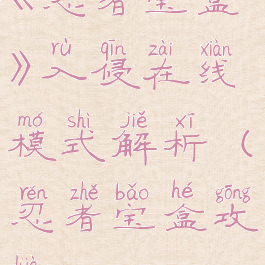 《忍者宝盒
rù qīn zài xiàn
》入侵在线
mó shì jiě xī
模式解析（
rěn zhě bǎo hé gōng
忍者宝盒攻